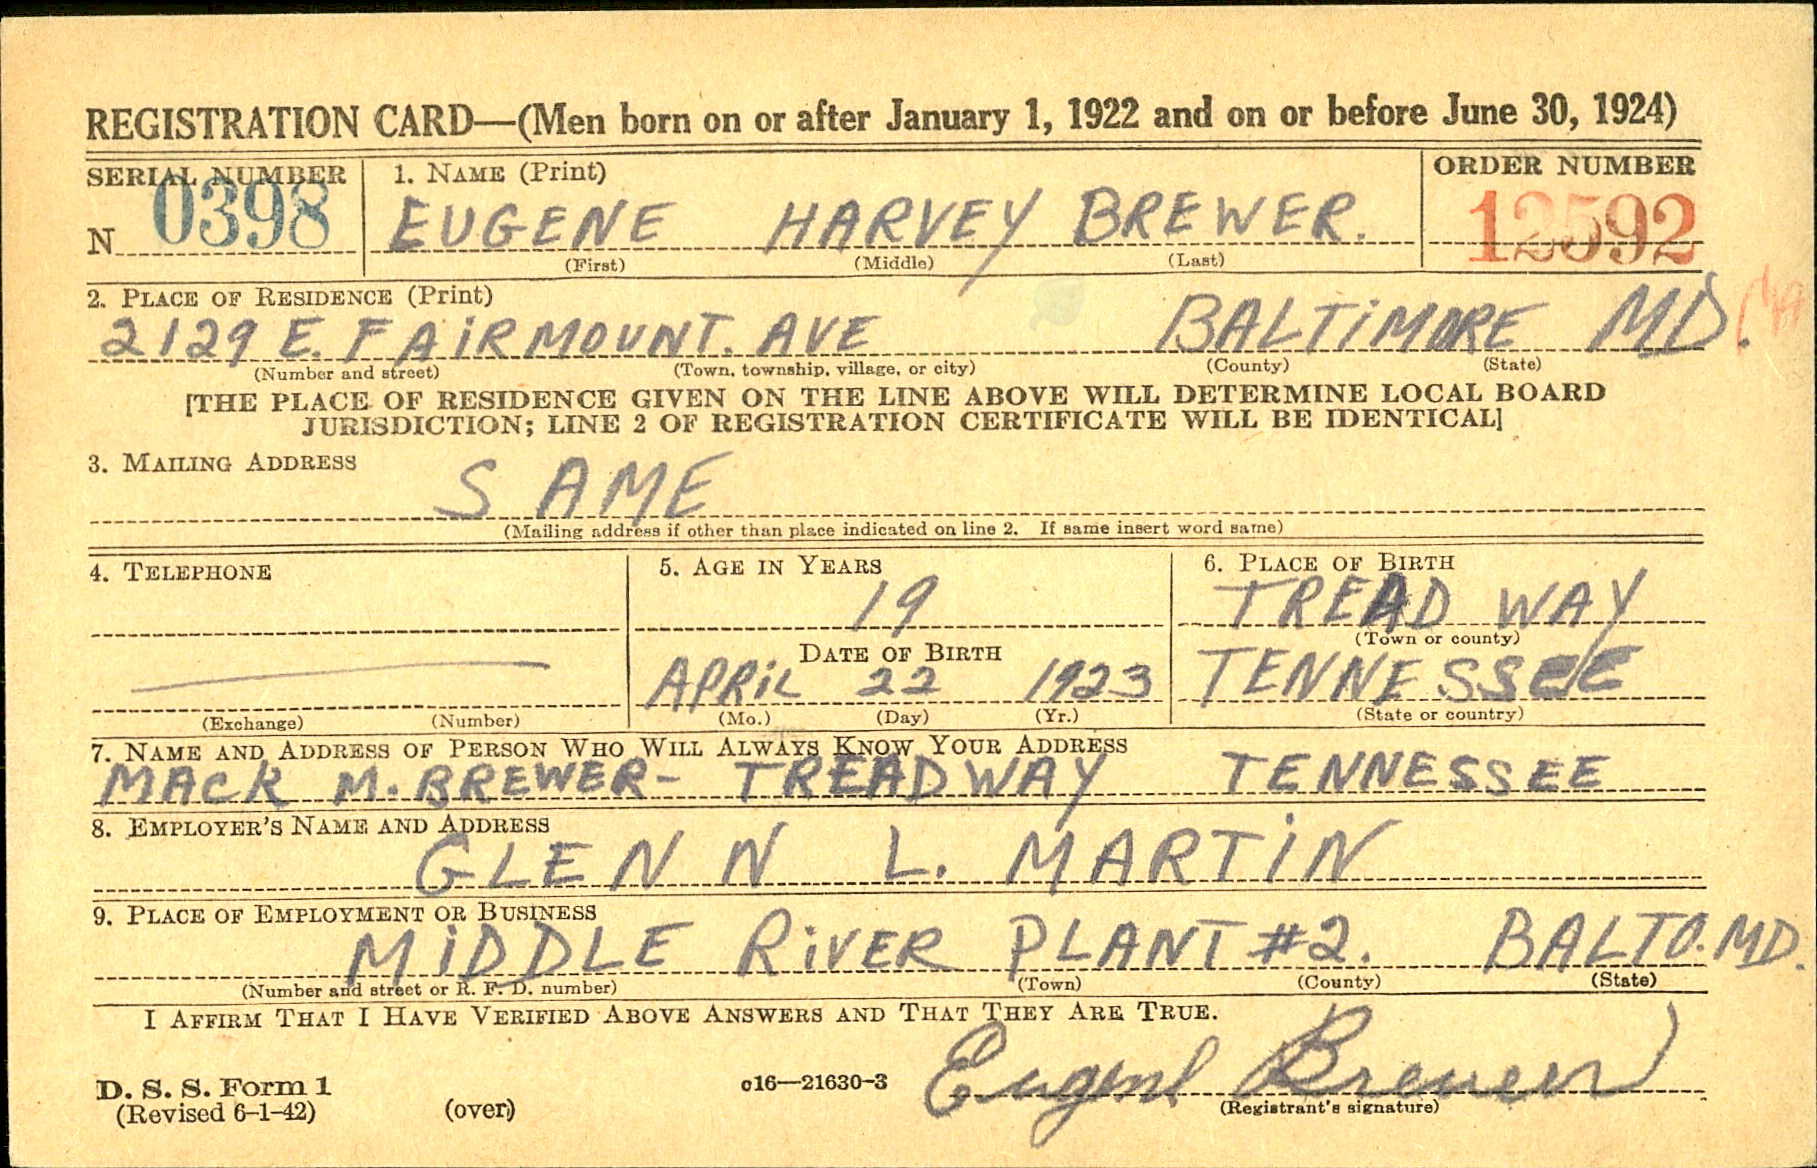 REGISTRATION CARD—(Men born on or after January 1, 1922 and on or before June 30, 1924)
SERIAL NUMBER 1. NAME (Print) ORDER NUMBER
N 0398 EUGENE HARVEY BREWER. 12592
(First) (Middle) (Last)
2. PLACE OF RESIDENCE (Print)
2129 E. FAIRMOUNT. AVE BALTIMORE MD.
(Number and street) (Town, township, village, or city) (County) (State)
[THE PLACE OF RESIDENCE GIVEN ON THE LINE ABOVE WILL DETERMINE LOCAL BOARD
JURISDICTION; LINE 2 OF REGISTRATION CERTIFICATE WILL BE IDENTICAL]
3. MAILING ADDRESS
SAME
(Mailing address if other than place indicated on line 2. If same insert word same)
4. TELEPHONE 5. AGE IN YEARS 6. PLACE OF BIRTH
19 TREAD WAY
(Town or county)
DATE OF BIRTH
APRIL 22 1923 TENNESSEE
(Exchange) (Number) (Mo.) (Day) (Yr.) (State or country)
7. NAME AND ADDRESS OF PERSON WHO WILL ALWAYS KNOW YOUR ADDRESS
MACK M. BREWER- TREADWAY TENNESSEE
8. EMPLOYER'S NAME AND ADDRESS
GLENN L. MARTIN
9. PLACE OF EMPLOYMENT OR BUSINESS
MIDDLE RIVER PLANT #2. BALTO. MD.
(Number and street or R. F. D. number) (Town) (County) (State)
I AFFIRM THAT I HAVE VERIFIED ABOVE ANSWERS AND THAT THEY ARE TRUE.
Eugene Brewer
D. S. S. Form 1 c16—21630-3
(Revised 6-1-42) (over) (Registrant's signature)